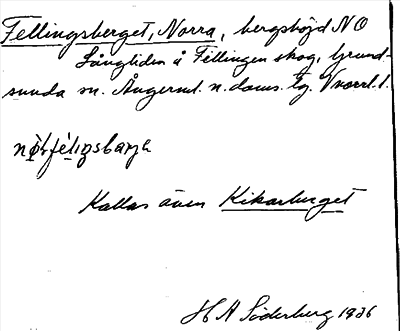 Fellingsberget, Norra, bergshöjd NO
Långliden å Fellingen skog, Grund-
sunda sn. Ångerml. n. doms. tg. Vnorrl. l.
Kallas även Kikarberget
H A Söderberg 1936